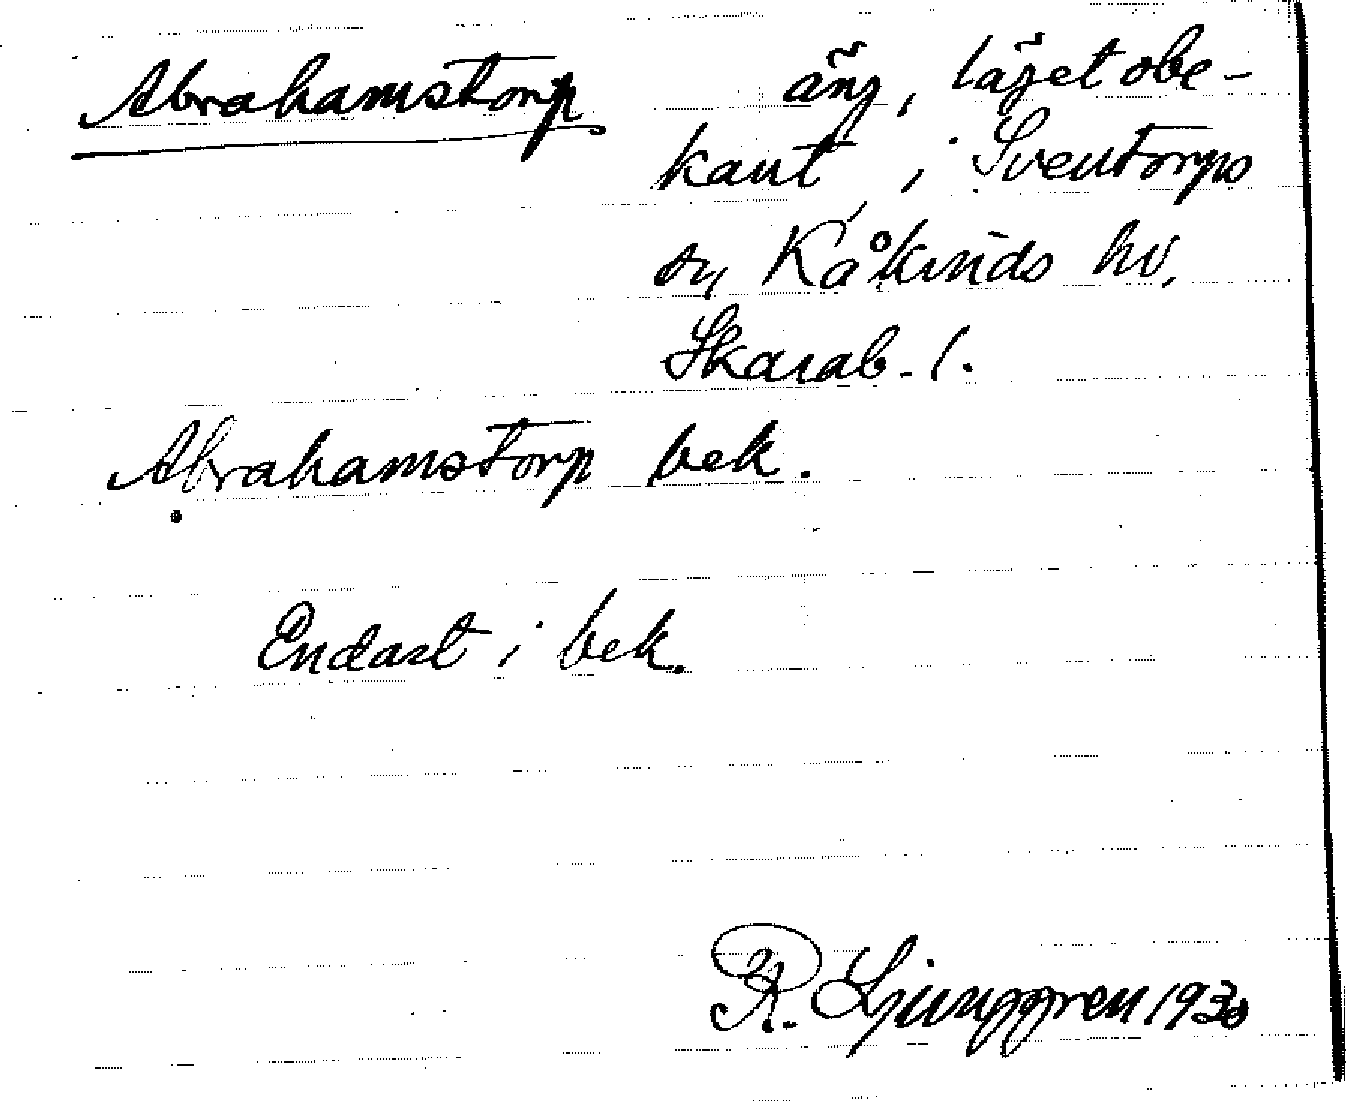 Abrahamstorp äng, läget obe-
kant, i Sventorps
sn, Kåkinds hd,
Skarab. l.
Abrahamstorp bek.
Endast i bek.
R. Ljunggren 1930